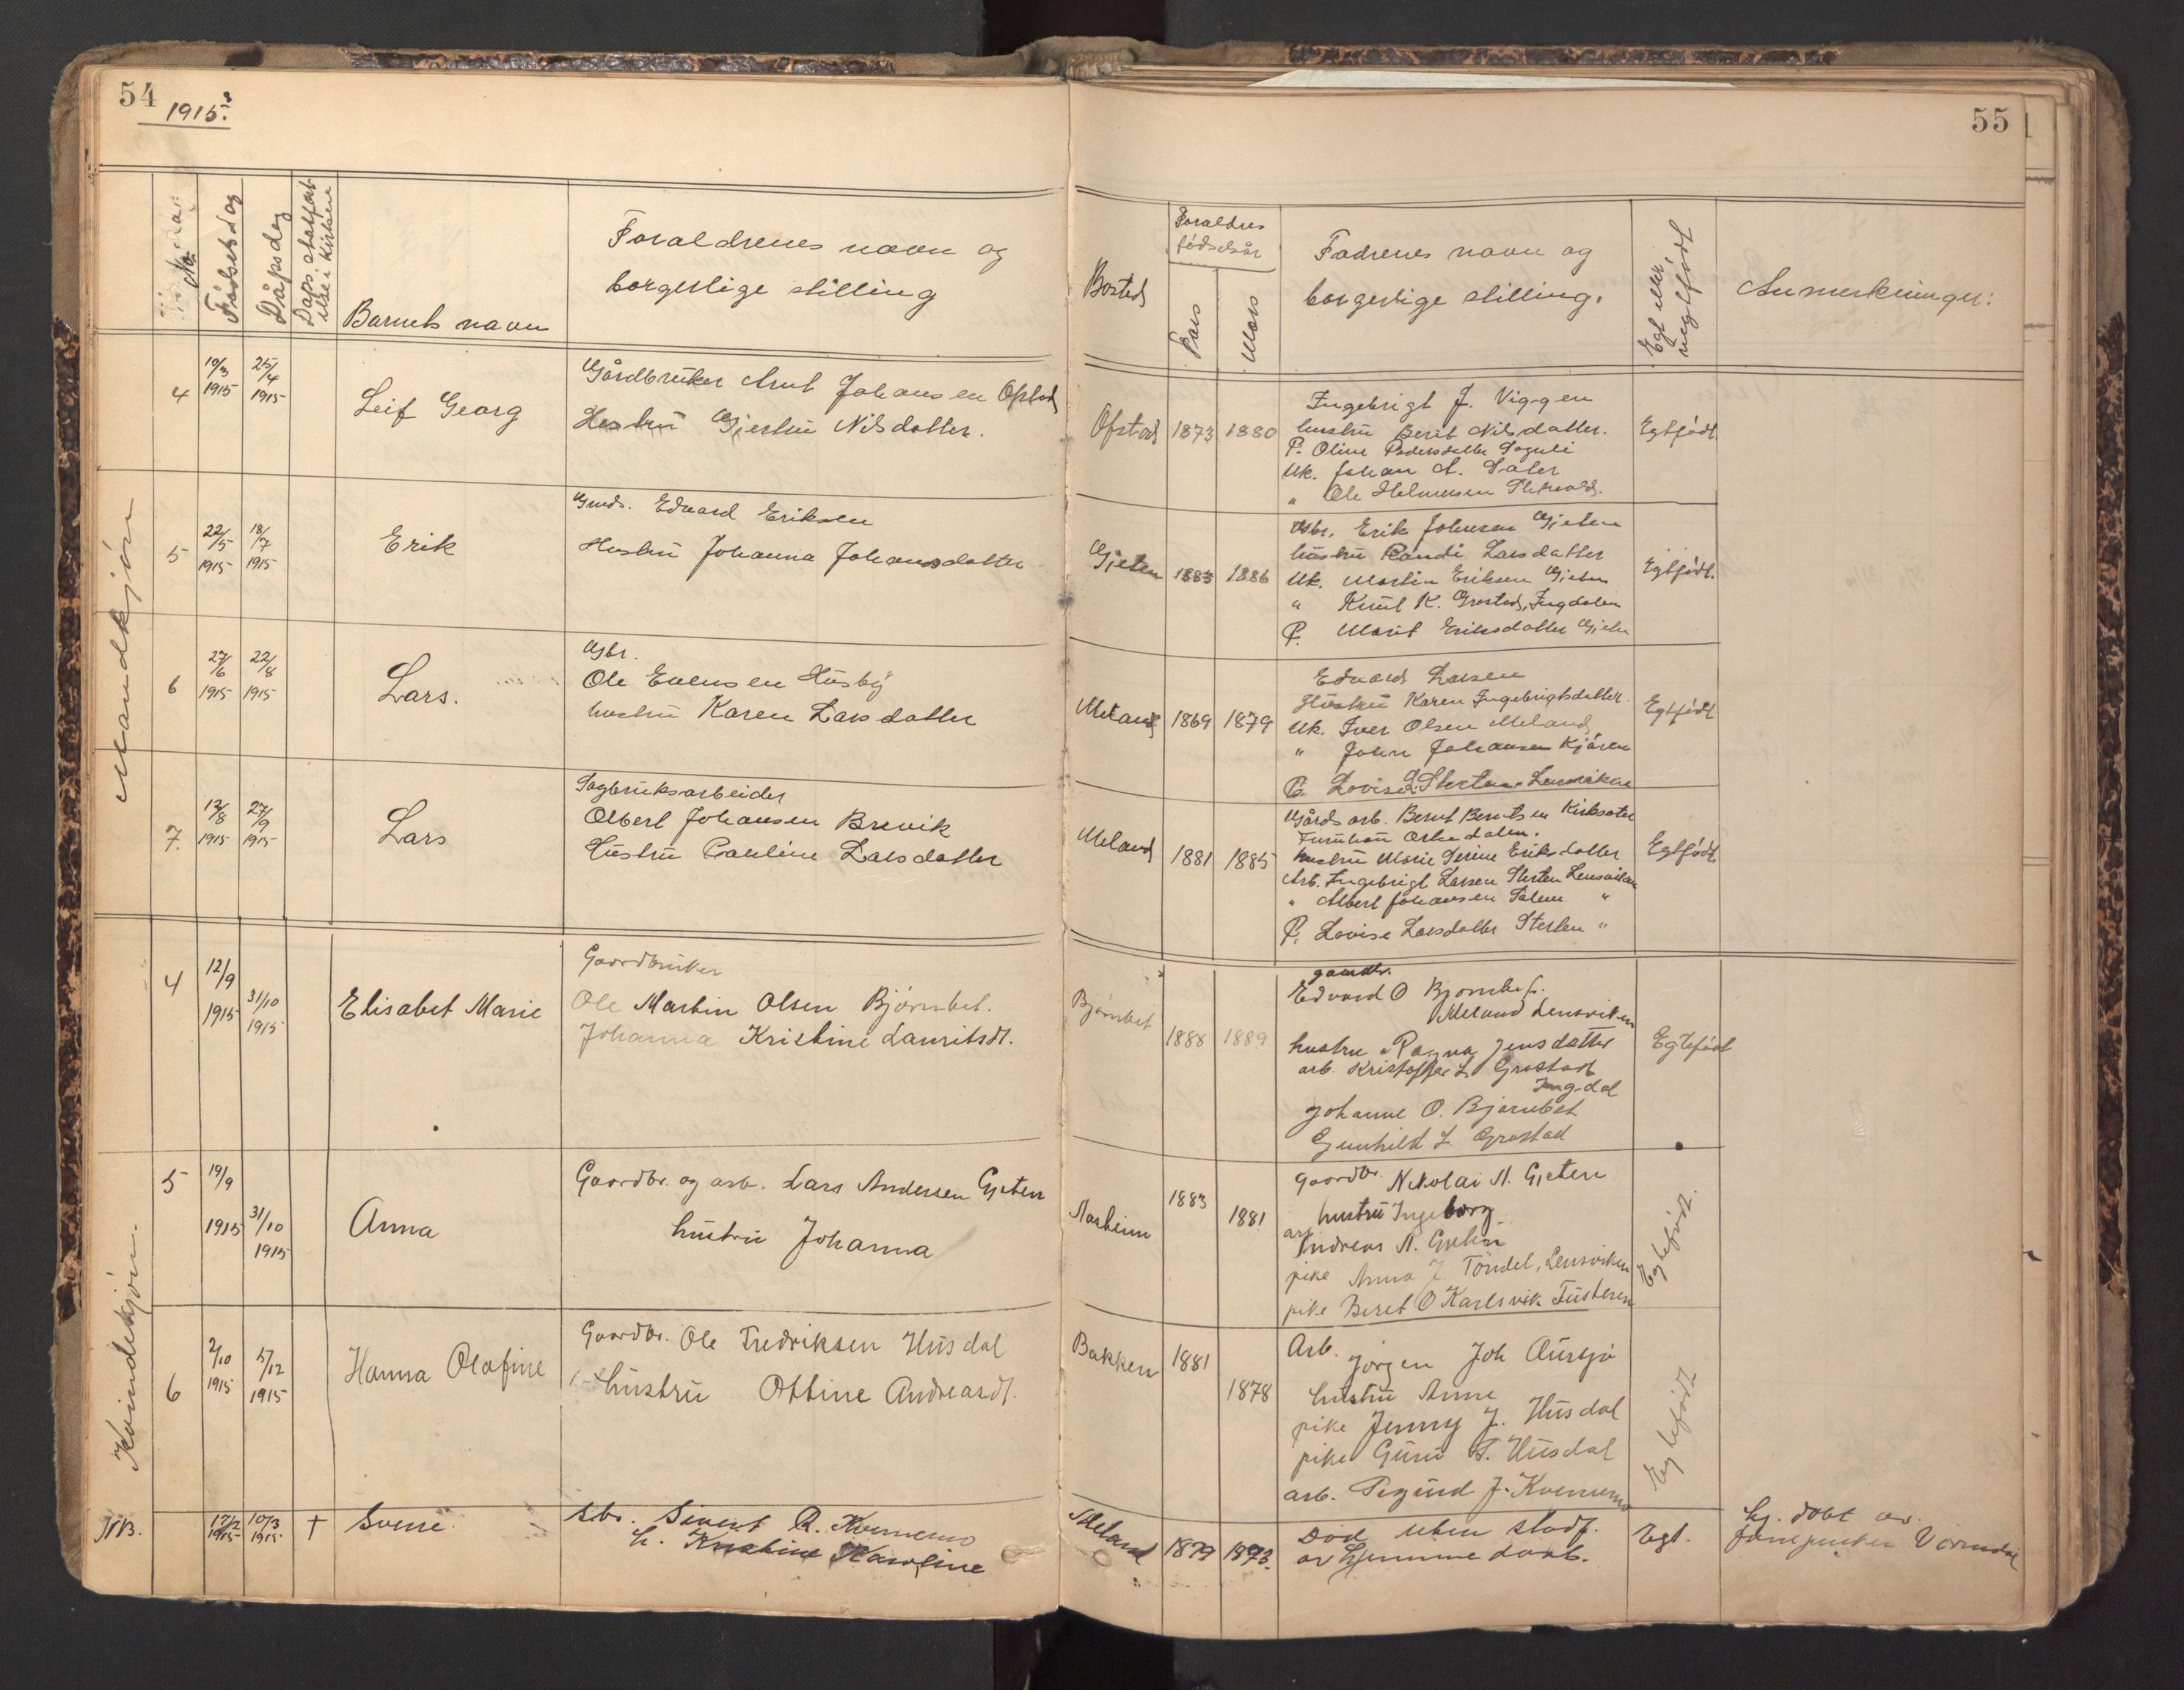 54
1915.
No.
Fødselsdag
Dåpsdag
Daps stadfæst-
else i Kirken
Barnets navn
Foraldrenes navn og
borgerlige stilling
Mandkjøn
4
10/3
1915
25/4
1915
Leif Georg
Gårdbruker Arnt Johansen Ofstad
Hustru Gjertru Nilsdatter.
5
22/5
1915
18/7
1915
Erik
Gmds. Edvard Eriksen
Hustru Johanna Johansdatter
6
27/6
1915
22/8
1915
Lars.
Gbr.
Ole Evensen Husby
hustru Karen Larsdatter
7.
12/8
1915
27/9
1915
Lars
Sagbruksarbeider
Olbert Johansen Brevik
Hustru Pauline Larsdatter
Kvindekjøn.
4
12/9
1915
31/10
1915
Elisabet Marie
Gaardbruker
Ole Martin Olsen Bjørnbet.
Johanna Kristine Lauritsdt.
5
19/9
1915
31/10
1915
Anna
Gaardbr. og arb. Lars Andersen Gjeten
hustru Johanna
6
2/10
1915
5/12
1915
Hanna Olafine
Gaardbr. Ole Fredriksen Husdal
hustru Ottine Andreasdt.
NB.
17/2
1915
10/3
1915
†
Sverre.
Sbr. Sivert A. Kvernmo
h. Kristine Karoline
55
Bosted
Foraldres
fødselsår
Fars
Mors
Fadrenes navn og
borgerlige stilling.
Egt eller
uegtfødt
Anmerkninger:
Ofstad
1873
1880
Ingebrigt J. Viggen
hustru Berit Nilsdatter.
P. Oline Pedersdatter
Uk. Johan A. Sater
" Ole Helmersen
Egtfødt.
Gjeten
1883
1886
Gbr. Erik Johnsen Gjeten
hustru Randi Larsdatter
Uk. Martin Eriksen Gjeten
" Knut K. Grøstad, Ingdalen
P. Marit Eriksdatter Gjeten
Egtfødt.
Meland
1869
1879
Edvard Larsen
Hustru Karen Ingebrigtsdatter.
Uk. Iver Olsen Meland
" John Johansen Kjøren
P. Lovise L. Sterten, Lensviken
Egtfødt
Meland
1881
1885
Gårdsarb. Bernt Berntsen Kirksæter
Orkedalen.
hustru Marie Serine Eriksdatter
Arb. Ingebrigt Larsen Sterten Lensviken
" Albert Johansen Salen "
P. Lovise Larsdatter Sterten "
Egtfødt
Bjørnbet
1888
1889
gaardbr.
Edvard O Bjørnbet.
Meland Lensviken
hustru Ragna Jensdatter
arb. Kristoffer L. Grøstad
Ingdal
Johanne O. Bjørnbet
Gunhild L. Grøstad
Egtefødt
Aasheim
1883
1881
Gaardbr. Nikolai A. Gjeten
hustru Ingeborg
arb. Andreas A. Gjeten
pike Anna J. Tøndel, Lensviken
pike Beret O Karlsvik Tusteren
Egtefødt.
Bakken
1881
1878
Arb. Jørgen Joh Aursjø
hustru Anne
pike Jenny J. Husdal
pike Guru F. Husdal
arb. Sigurd J. Kvernmo
Egtefødt
Meland
1879
1873
Død uten stadf.
av hjemmedaab.
Egt.
hj. døbt av